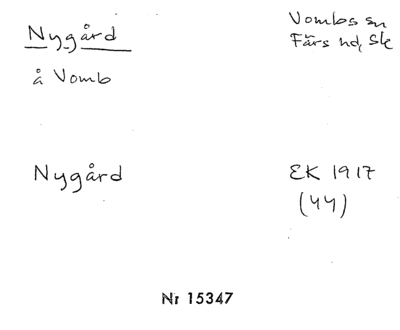 Nygård
Vombs sn
Färs hd, Sk
å Vomb
Nygård
EK 1917
(44)
Nr 15347